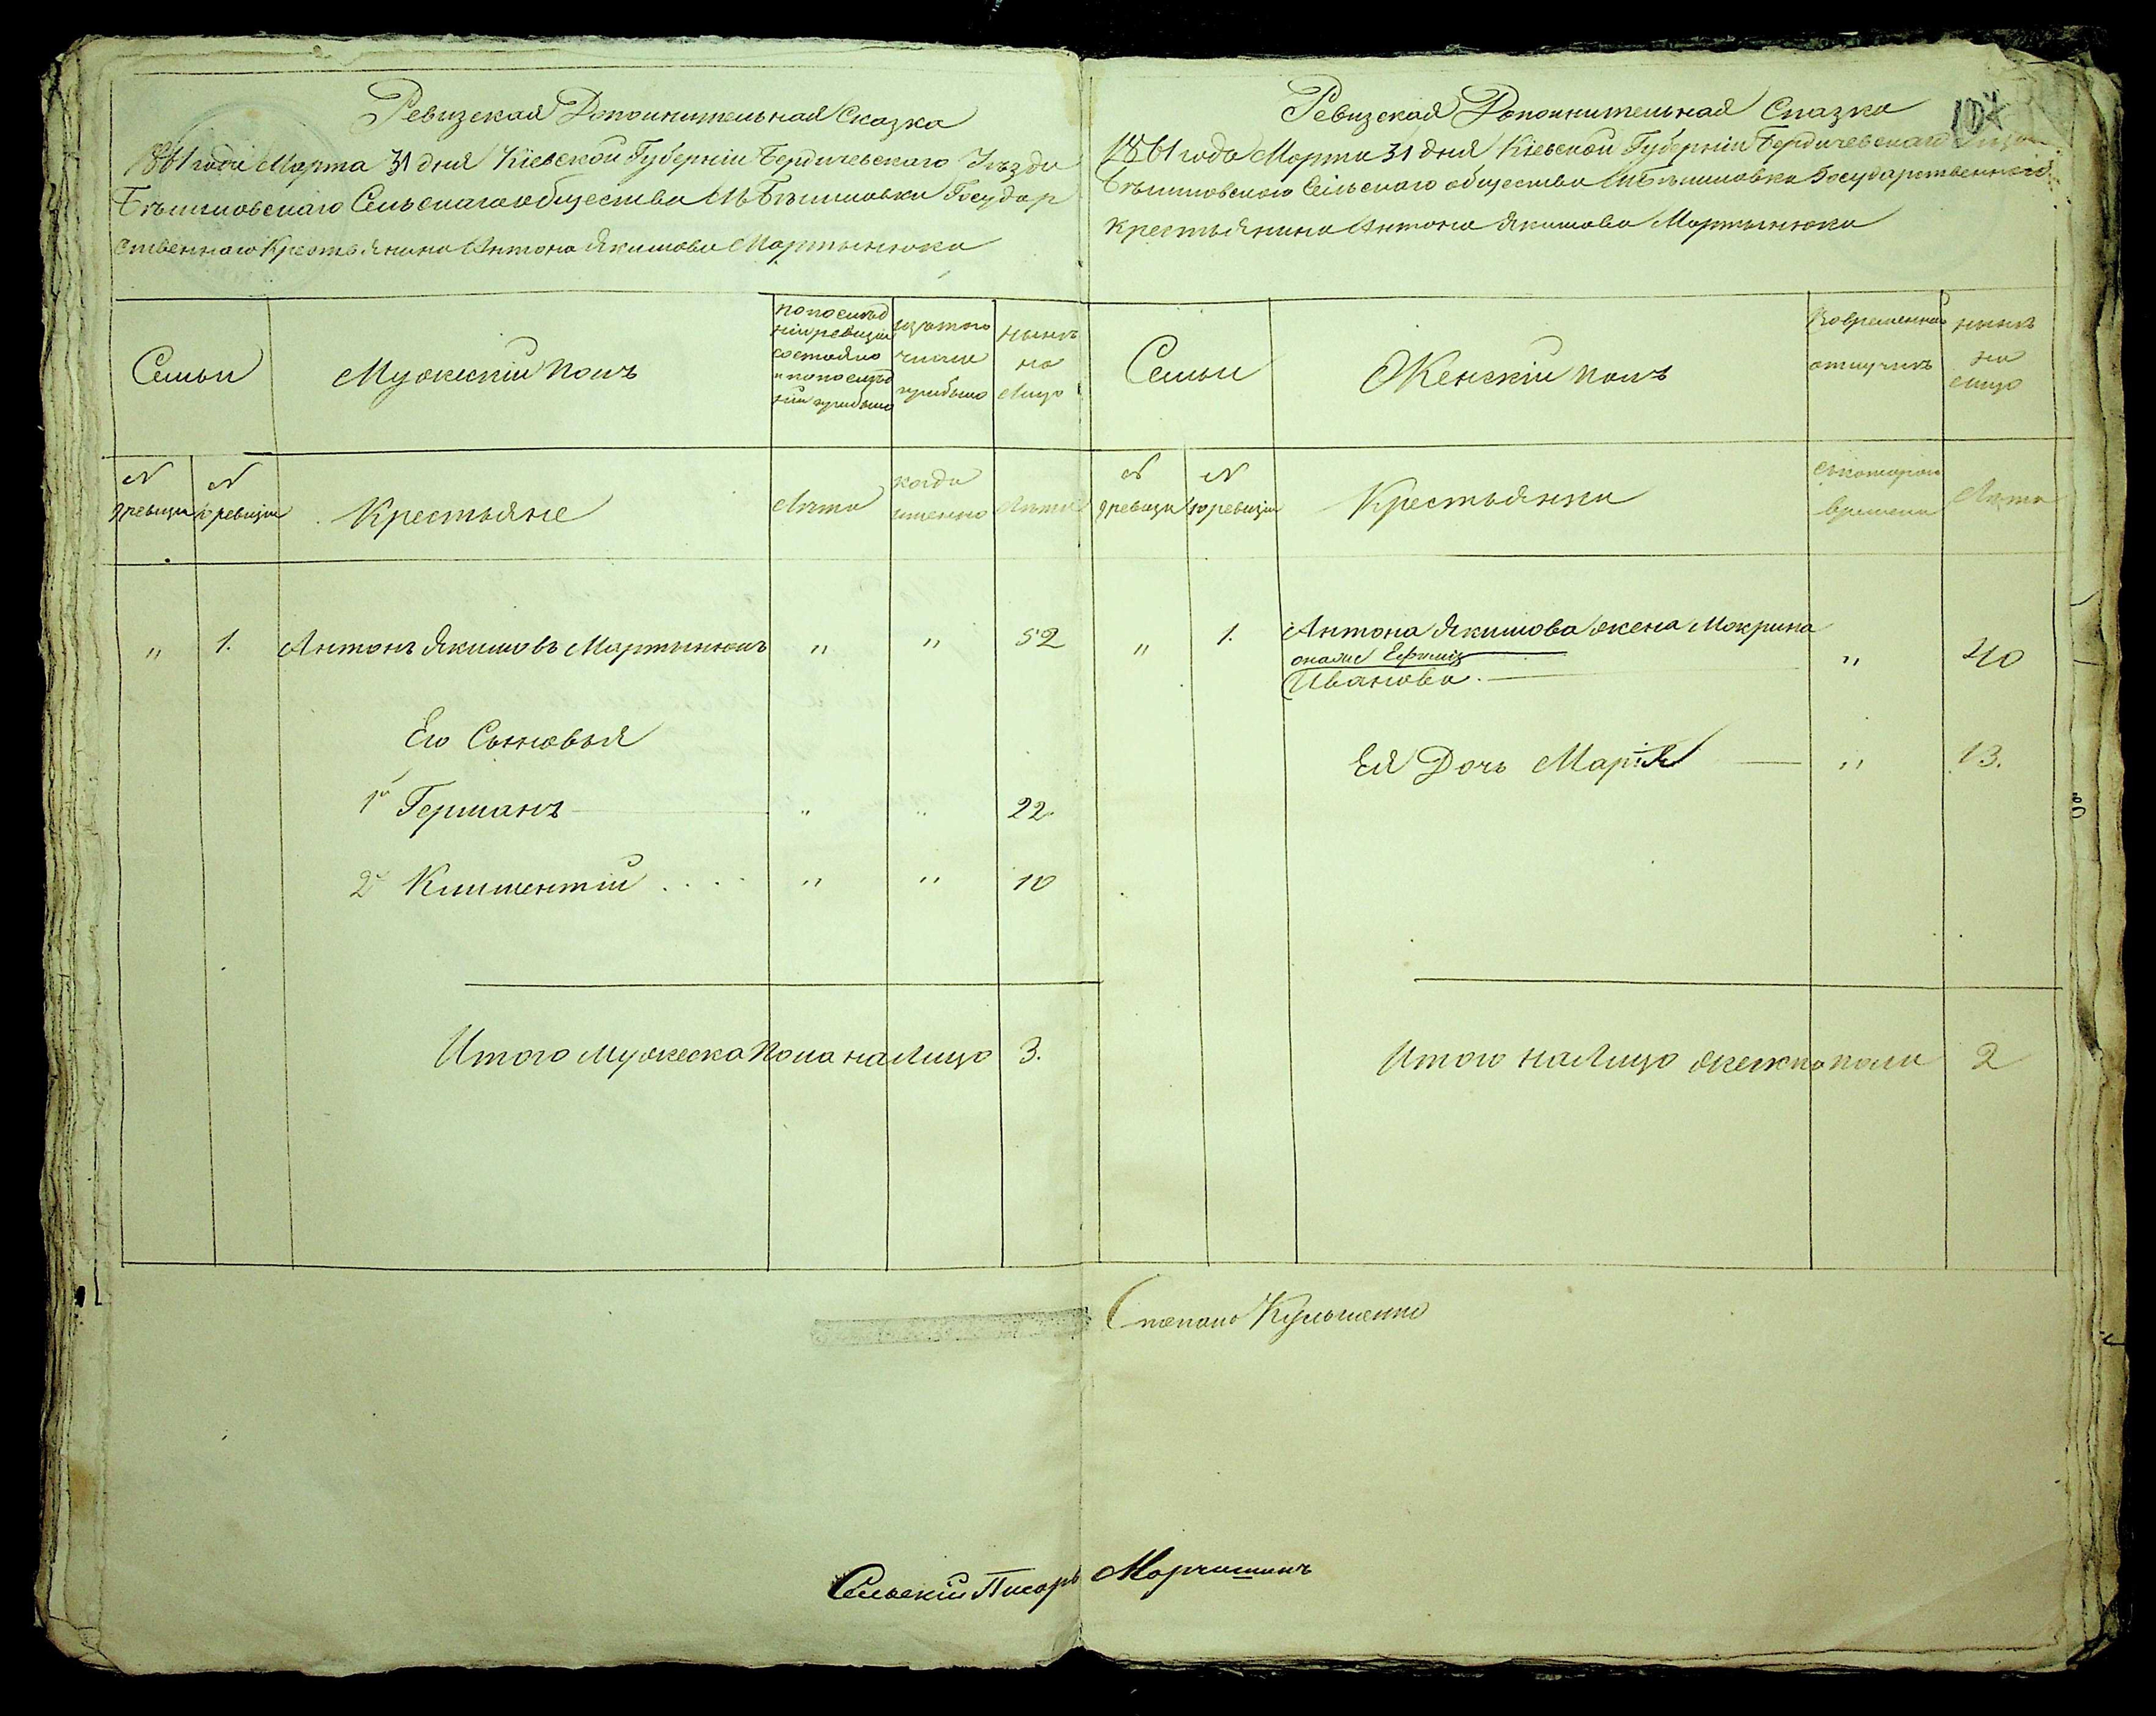 Ревизская Дополнительная Сказка
1861 года Марта 31 дня Кіевской Губерніи Бердичевскаго Уѣзда
Сельскаго общества Государ
ственнаго Крестьянина Антона Якимова Мартынюка
Семьи
Мужескій полъ
по послѣд
ней ревизіи
состояло
и по послѣд
ней прибыло
изъ того
числа
прибыло
нынѣ
на
лицо
N
9 ревизіи
N
10 ревизіи
Крестьяне
Лѣта
когда
именно
Лѣта
" 1. Антонъ Якимовъ Мартынюкъ " " 52
Его Сыновья
1й Германъ " " 22
2й Климентій . . . . " " 10
Итого мужеска пола на лицо 3.
107
Ревизская Дополнительная Сказка
1861 года Марта 31 дня Кіевской Губерніи Бердичевскаго
Сельскаго общества Государственнаго
крестьянина Антона Якимова Мартынюка
Семьи
Женскій полъ
Во временной
отлучкѣ
нынѣ
на
лицо
N
9 ревизіи
N
10 ревизіи
Крестьянки
съ котораго
времени
Лѣта
" 1. Антона Якимова жена Мокрина
онаже
Иванова. " 40
Ея Дочь Марія " 13.
Итого на лицо женска пола 2
Сельскій Писарь